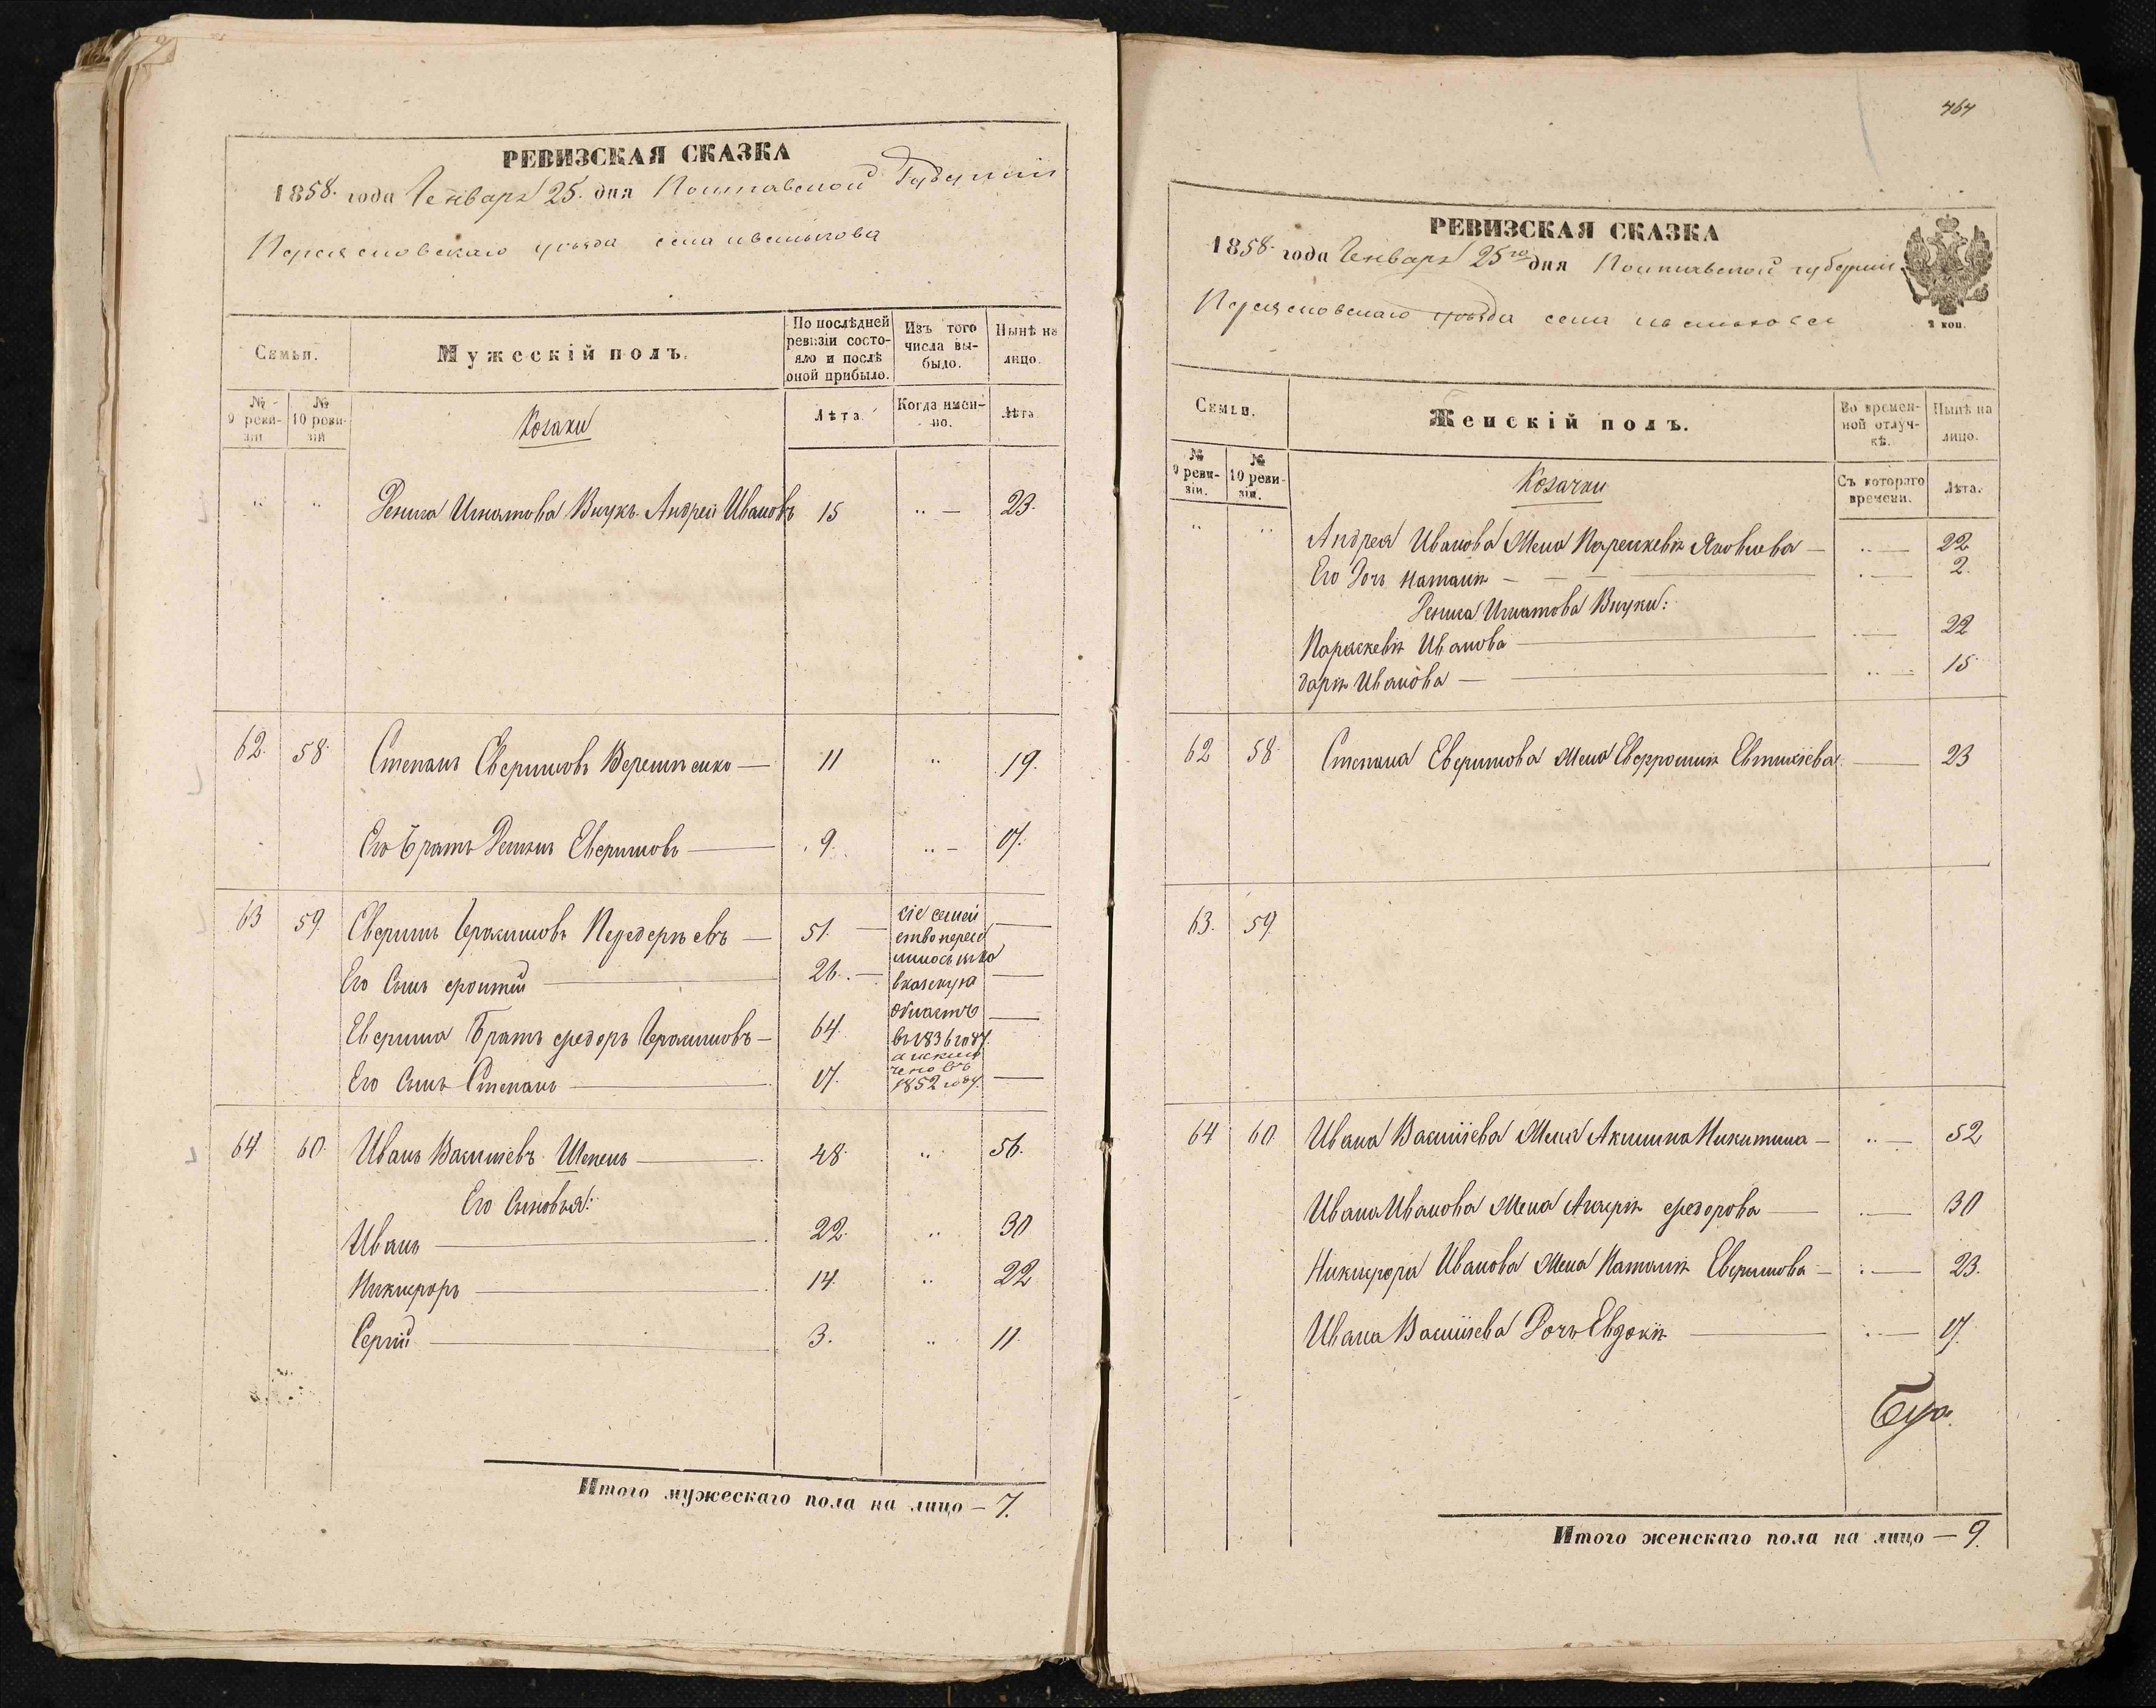 РЕВИЗСКАЯ СКАЗКА
1858. года Генваря 25. дня Полтавской Губерніи
Переясловскаго уѣзда села
Семьи.
Мужескій полъ.
По послѣдней ревизіи состояло и послѣ оной прибыло.
Изъ того числа выбыло.
Нынѣ на лицо.
№ 9 ревизіи
№ 10 ревизіи
Козаки
Лѣта.
Когда именно.
Лѣта
" " Дениса Игнатова Внукъ Андрей Ивановъ 15 " — 23.
62. 58. Степанъ Евфимовъ — 11 " 19.
Его Братъ Евфимовъ — 9. " — 17.
63 59 Евфимъ Герасимовъ — 51. —
Его Сынъ — 26. —
Евфима Братъ Федоръ Герасимовъ — 64. —
Его Сынъ Степанъ — 17. —
сіе семей
ство пересе
лилось
в
область
въ 1836 году
а исклю
чено въ
1852 году.
64. 60. Иванъ Васильевъ Шепель — 48. " 56.
Его Сыновья:
Иванъ — 22. " 30
Никифоръ — 14. " 22
Сергій — 3. " 11
Итого мужескаго пола на лицо — 7.
464
РЕВИЗСКАЯ СКАЗКА
1858. года Генваря 25го дня Полтавской губерніи
Переясловскаго уѣзда села
2 коп.
Семьи.
Женскій полъ.
Во временной отлучкѣ.
Нынѣ на лицо.
№ 9 ревизіи.
№ 10 ревизіи.
Козачки
Съ котораго времени.
Лѣта.
" " Андрея Иванова Жена Параскевія Яковлева — " — 22
Его Дочь Наталія — " — 2.
Дениса Игнатова Внуки:
Параскевія Иванова — " — 22
Дарія Иванова — " — 15
62 58 Степана Евфимова Жена Евфросинія Евтихіева — 23
63. 59.
64 60. Ивана Васильева Жена Акилина Никитина — " — 52
Ивана Иванова Жена Федорова — " — 30
Никифора Иванова Жена Наталія Евфимова — " — 23.
Ивана Васильева Дочь Евдокія — " — 17.
Итого женскаго пола на лицо — 9.